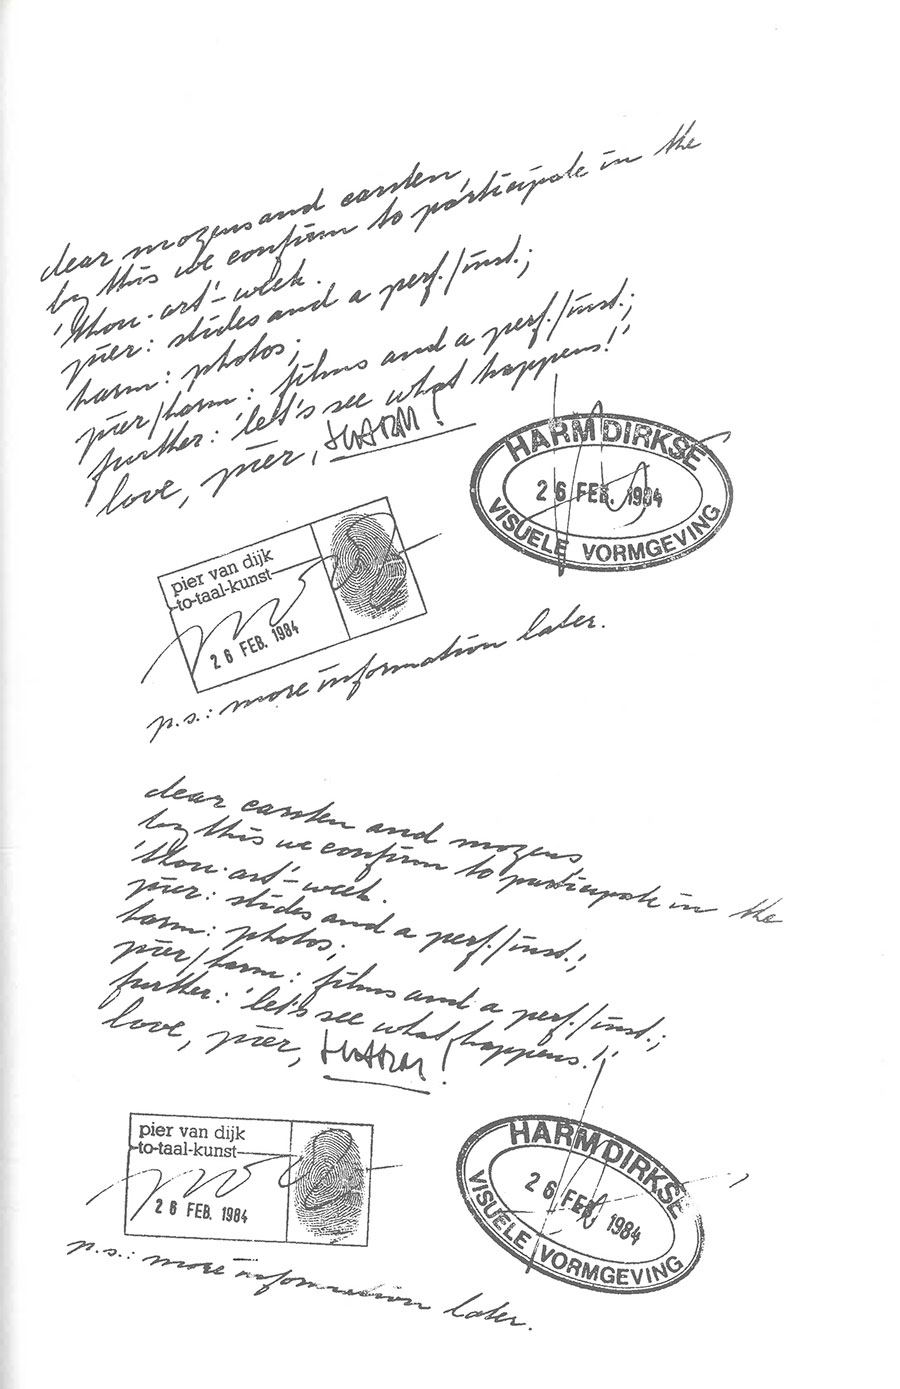 dear mogens and carsten,
by this we confirm to participate in the
'thou-art'-week.
pier: slides and a perf./inst.;
harm: photos;
pier/harm: films and a perf./inst.;
further: 'let's see what happens!'
love, pier, HARM!
HARM DIRKSE
26 FEB. 1984
VISUELE VORMGEVING
pier van dijk
-to-taal-kunst-
26 FEB. 1984
p.s.: more information later.
dear carsten and mogens
by this we confirm to participate in the
'thou-art'-week.
pier: slides and a perf./inst.;
harm: photos;
pier/harm: films and a perf./inst.;
further: 'let's see what happens!'
love, pier, HARM!
pier van dijk
-to-taal-kunst-
26 FEB. 1984
HARM DIRKSE
26 FEB. 1984
VISUELE VORMGEVING
p.s.: more information later.